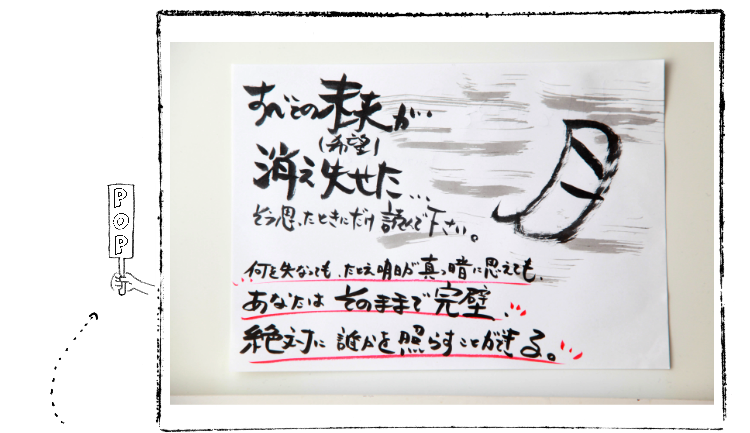 POP
すべての未来が…
(希望)
消え失せた…
そう思ったときにだけ 読んで下さい。
月
何を失なっても、たとえ明日が真っ暗に思えても、
あなたは そのままで完璧、
絶対に 誰かを照らすことができる。